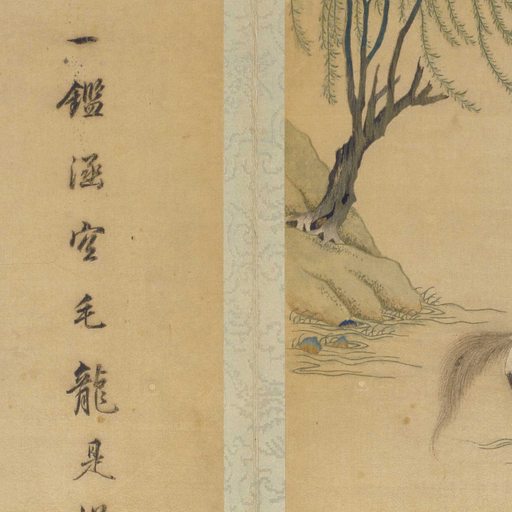 一鑑涵空毛龍是